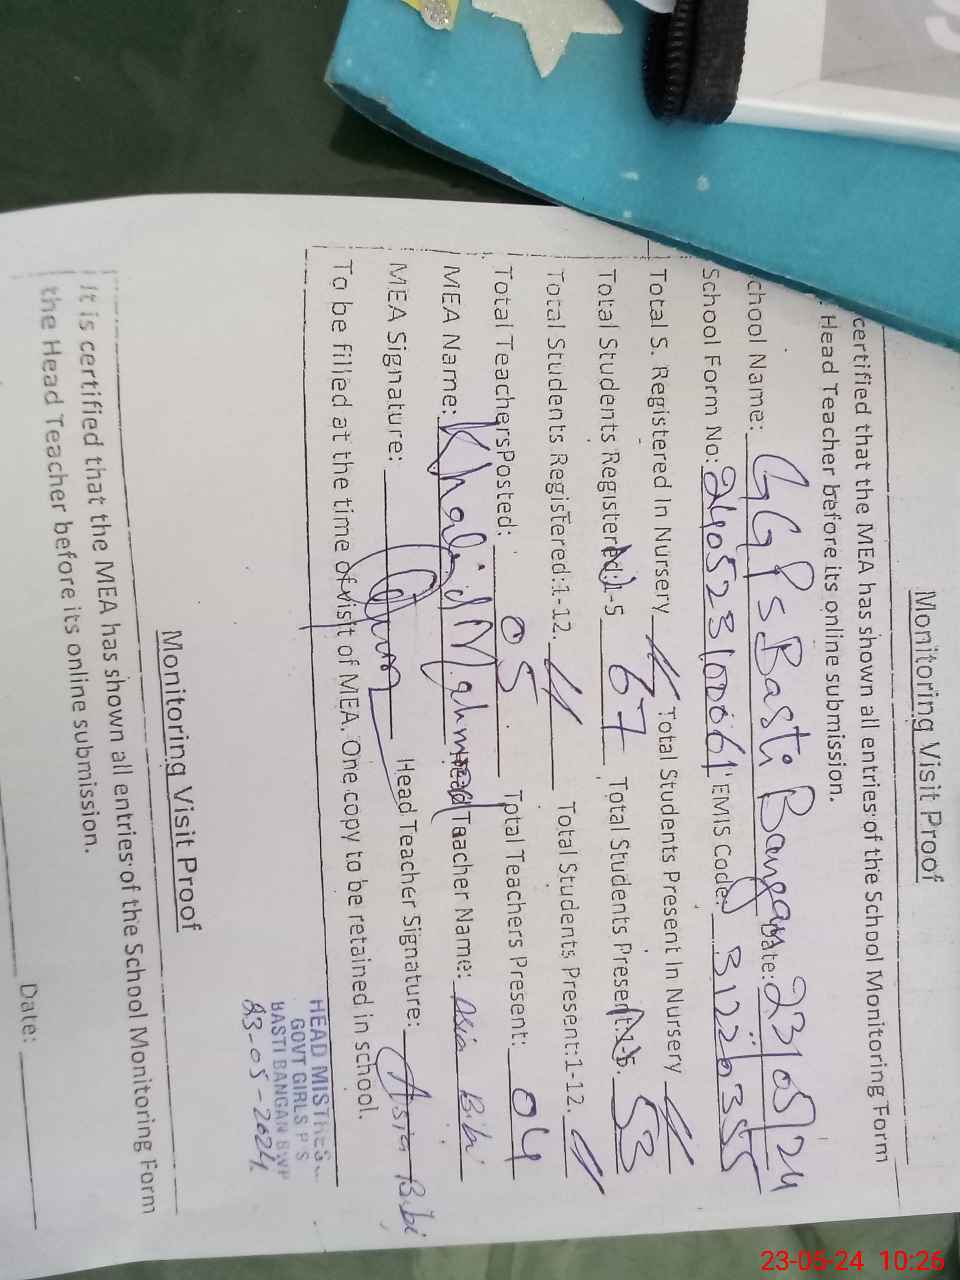 Monitoring Visit Proof
certified that the MEA has shown all entries of the School Monitoring Form
Head Teacher before its online submission.
chool Name: GGPS Basti Bangan Date: 23/05/24
School Form No: 240523100061 EMIS Code: 31220355
Total S. Registered In Nursery Total Students Present In Nursery
Total Students Registered:N-5 67 Total Students Present:N-5. 53
Total Students Registered:1-12. Total Students Present:1-12.
Total TeachersPosted: 05 Total Teachers Present: 04
MEA Name: Khalid Mahmood Head Teacher Name: Asia Bibi
MEA Signature: Head Teacher Signature: Asia Bibi
To be filled at the time of visit of MEA. One copy to be retained in school.
HEAD MISTRESS
GOVT GIRLS P S
BASTI BANGAN BWP
23-05-2024
Monitoring Visit Proof
It is certified that the MEA has shown all entries of the School Monitoring Form
the Head Teacher before its online submission.
Date:
23-05-24 10:26